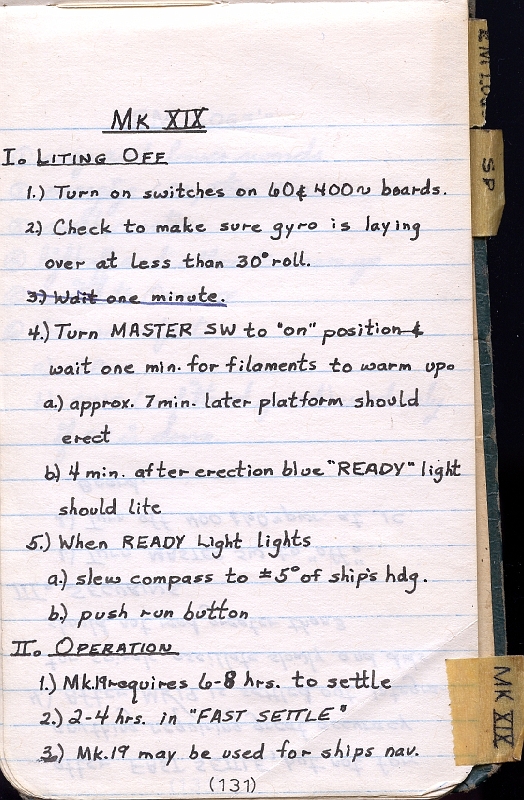 MK XIX
I. LITING OFF
1.) Turn on switches on 60 & 400~ boards.
2.) Check to make sure gyro is laying
over at less than 30° roll.
3.) Wait one minute.
4.) Turn MASTER SW to "on" position &
wait one min. for filaments to warm up.
a.) approx. 7 min. later platform should
erect
b.) 4 min. after erection blue "READY" light
should lite
5.) When READY Light lights
a.) slew compass to ±5° of ship's hdg.
b.) push run button
II. OPERATION
1.) Mk.19 requires 6-8 hrs. to settle
2.) 2-4 hrs. in "FAST SETTLE"
3.) Mk.19 may be used for ships nav.
(131)
SP
MK XIX